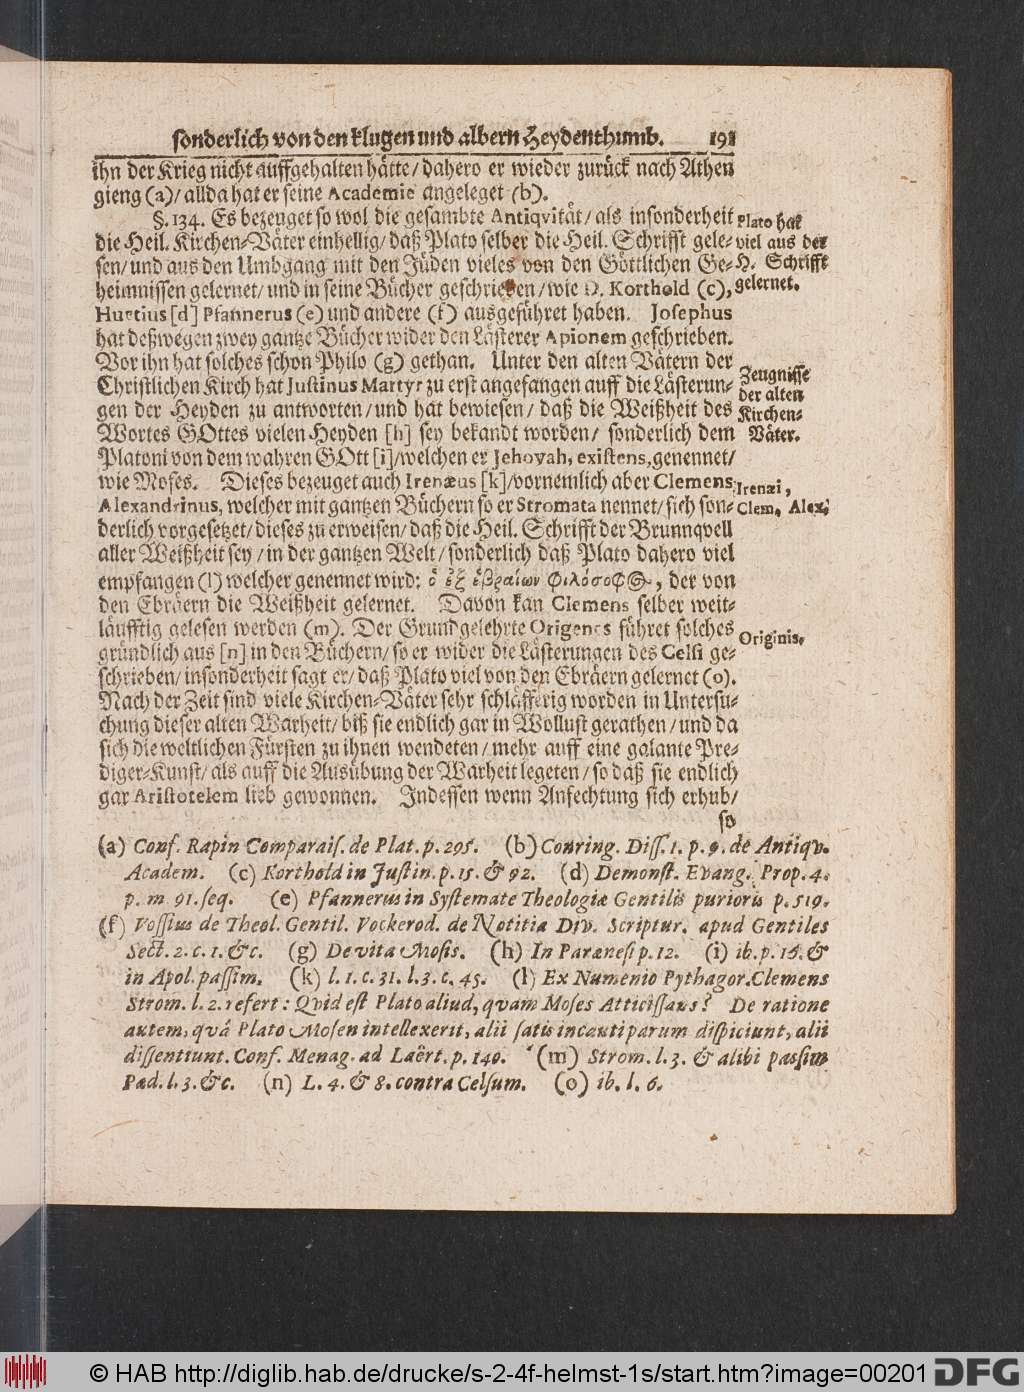 sonderlich von den klugen und albern Heydenthumb. 191
ihn der Krieg nicht auffgehalten hätte / dahero er wieder zurück nach Athen
gieng (a) / allda hat er seine Academie angeleget (b).
§. 134. Es bezeuget so wol die gesambte Antiqvität / als insonderheit
die Heil. Kirchen-Väter einhellig / daß Plato selber die Heil. Schrifft gele-
sen / und aus den Umbgang mit den Jüden vieles von den Göttlichen Ge-
heimnissen gelernet / und in seine Bücher geschrieben / wie D. Korthold (c),
Huetius [d] Pfannerus (e) und andere (f) ausgeführet haben. Josephus
hat deßwegen zwey gantze Bücher wider den Lästerer Apionem geschrieben.
Vor ihn hat solches schon Philo (g) gethan. Unter den alten Vätern der
Christlichen Kirch hat Justinus Martyr zu erst angefangen auff die Lästerun-
gen der Heyden zu antworten / und hat bewiesen / daß die Weißheit des
Wortes GOttes vielen Heyden [h] sey bekandt worden / sonderlich dem
Platoni von dem wahren GOtt [i] / welchen er Jehovah, existens, genennet /
wie Moses. Dieses bezeuget auch Irenæus [k] / vornemlich aber Clemens
Alexandrinus, welcher mit gantzen Büchern so er Stromata nennet / sich son-
derlich vorgesetzet / dieses zu erweisen / daß die Heil. Schrifft der Brunnqvell
aller Weißheit sey / in der gantzen Welt / sonderlich daß Plato dahero viel
empfangen (l) welcher genennet wird: ὁ ἐξ ἑβραίων φιλόσοφος, der von
den Ebräern die Weißheit gelernet. Davon kan Clemens selber weit-
läufftig gelesen werden (m). Der Grundgelehrte Origenes führet solches
gründlich aus [n] in den Büchern / so er wider die Lästerungen des Celsi ge-
schrieben / insonderheit sagt er / daß Plato viel von den Ebräern gelernet (o).
Nach der Zeit sind viele Kirchen-Väter sehr schläfferig worden in Untersu-
chung dieser alten Warheit / biß sie endlich gar in Wollust gerathen / und da
sich die weltlichen Fürsten zu ihnen wendeten / mehr auff eine galante Pre-
diger-Kunst / als auff die Ausübung der Warheit legeten / so daß sie endlich
gar Aristotelem lieb gewonnen. Indessen wenn Anfechtung sich erhub /
so
Plato hat
viel aus der
H. Schrifft
gelernet.
Zeugnisse
der alten
Kirchen-
Väter.
Irenæi,
Clem. Alex.
Originis.
(a) Conf. Rapin Comparais. de Plat. p. 295. (b) Conring. Diss. 1. p. 9. de Antiqv.
Academ. (c) Korthold in Justin. p. 15. & 92. (d) Demonst. Evang. Prop. 4.
p. m. 91. seq. (e) Pfannerus in Systemate Theologiæ Gentilis purioris p. 519.
(f) Vossius de Theol. Gentil. Vockerod. de Notitia Div. Scriptur. apud Gentiles
Sect. 2. c. 1. &c. (g) De vita Mosis. (h) In Parænesi p. 12. (i) ib. p. 16. &
in Apol. passim. (k) l. 1. c. 31. l. 3. c. 45. (l) Ex Numenio Pythagor. Clemens
Strom. l. 2. refert: Qvid est Plato aliud, qvam Moses Atticissans? De ratione
autem, qvâ Plato Mosen intellexerit, alii satis incauti parum dispiciunt, alii
dissentiunt. Conf. Menag. ad Laërt. p. 140. (m) Strom. l. 3. & alibi passim
Pæd. l. 3. &c. (n) L. 4. & 8. contra Celsum. (o) ib. l. 6.
© HAB http://diglib.hab.de/drucke/s-2-4f-helmst-1s/start.htm?image=00201 DFG